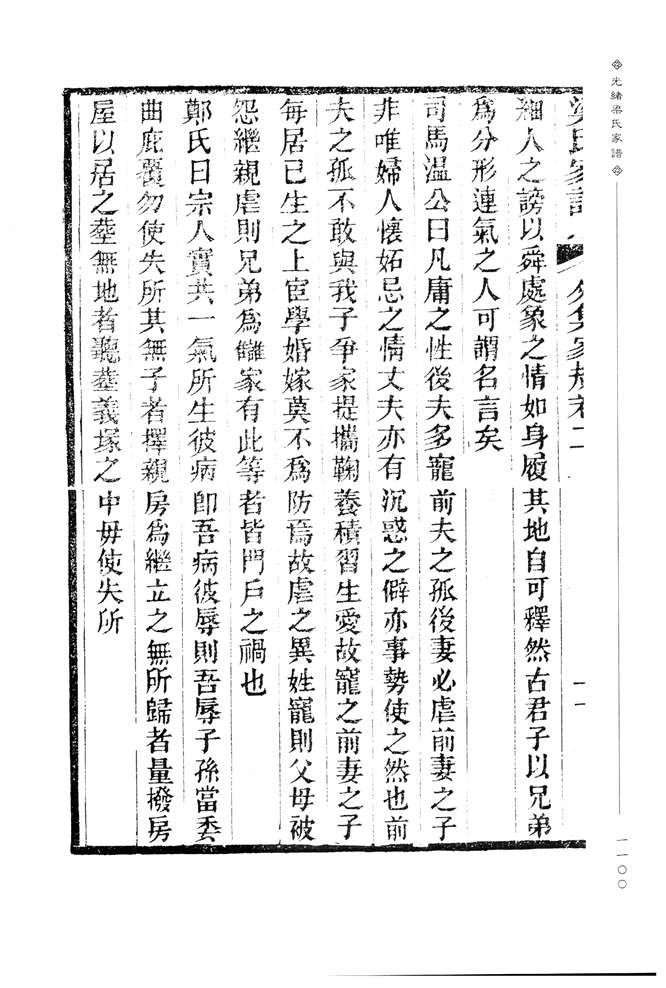 光緒梁氏家譜
一一〇〇
梁氏家譜 外集家規卷二 十一
細人之謗以舜處象之情如身履其地自可釋然古君子以兄弟
為分形連氣之人可謂名言矣
司馬温公曰凡庸之性後夫多寵前夫之孤後妻必虐前妻之子
非唯婦人懷妬忌之情丈夫亦有沉惑之僻亦事勢使之然也前
夫之孤不敢與我子爭家提攜鞠養積習生愛故寵之前妻之子
每居己生之上宦學婚嫁莫不為防焉故虐之異姓寵則父母被
怨繼親虐則兄弟為讎家有此等者皆門戶之禍也
鄭氏曰宗人實共一氣所生彼病即吾病彼辱則吾辱子孫當委
曲庇覆勿使失所其無子者擇親房為繼立之無所歸者量撥房
屋以居之塟無地者聽塟義塚之中毋使失所